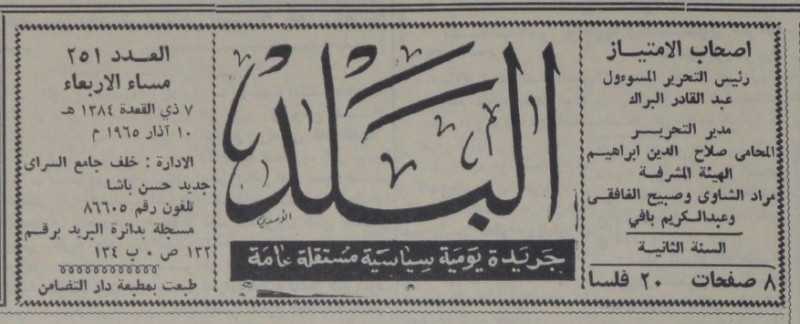 اصحاب الامتياز
رئيس التحرير المسوءول
عبد القادر البراك
مدير التحرير
المحامى صلاح الدين ابراهيم
الهيئة المشرفة
مراد الشاوى وصبيح الغافقى
وعبدالكريم بافي
السنة الثانية
٨ صفحات ٢٠ فلسا
البلد
الأسدي
جريدة يومية سياسية مستقلة عامة
العدد ٢٥١
مساء الاربعاء
٧ ذي القعدة ١٣٨٤ هـ
١٠ آذار ١٩٦٥ م
الادارة : خلف جامع السراى
جديد حسن باشا
تلفون رقم ٨٦٦٠٥
مسجلة بدائرة البريد برقم
١٣٢ ص ٠ ب ١٣٤
طبعت بمطبعة دار التضامن